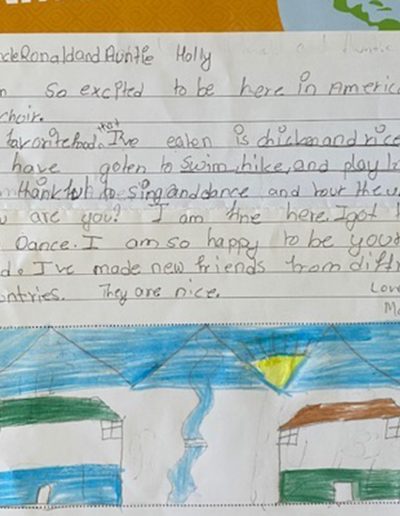 cleRonaldandAuntie Holly
so excpted to be here in America
choir.
favoritefood. that I've eaten is chickenandrice
have goten to swim, hike, and play
thankful to singanddance and tour the
are you? I am fine here. I got
Dance. I am so happy to be your
d. I've made new friends from diff
untries. They are nice.
Love